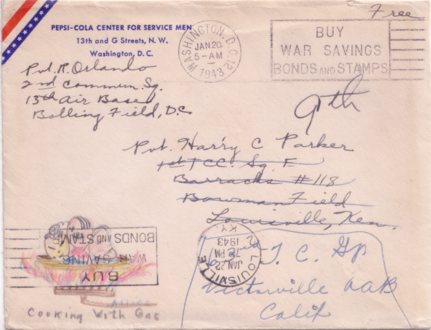 Free
PEPSI-COLA CENTER FOR SERVICE MEN
13th and G Streets, N. W.
Washington, D. C.
WASHINGTON, D.C. 12
JAN 20
5-AM
1943
BUY
WAR SAVINGS
BONDS AND STAMPS
Pvt. R. Orlando
2nd Commun. Sq.
15th Air Base
Bolling Field, D.C
9th
Pvt. Harry C Parker
1st TCC. Sq. F
Barracks #118
Bowman Field
Louisville, Ken.
LOUISVILLE
KY
JAN 22
1943
T. C. Gp
Victorville AAB
Calif
BUY
WAR SAVINGS
BONDS AND STAMPS
Cooking With Gas